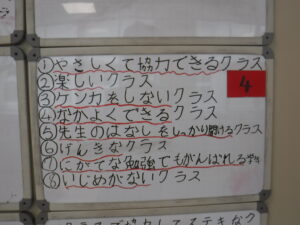 ①やさしくて協力できるクラス
②楽しいクラス
③ケンカをしないクラス
④なかよくできるクラス
⑤先生のはなしをしっかり聞けるクラス
⑥げんきなクラス
⑦にがてな勉強でもがんばれる学年
⑧いじめがないクラス
4